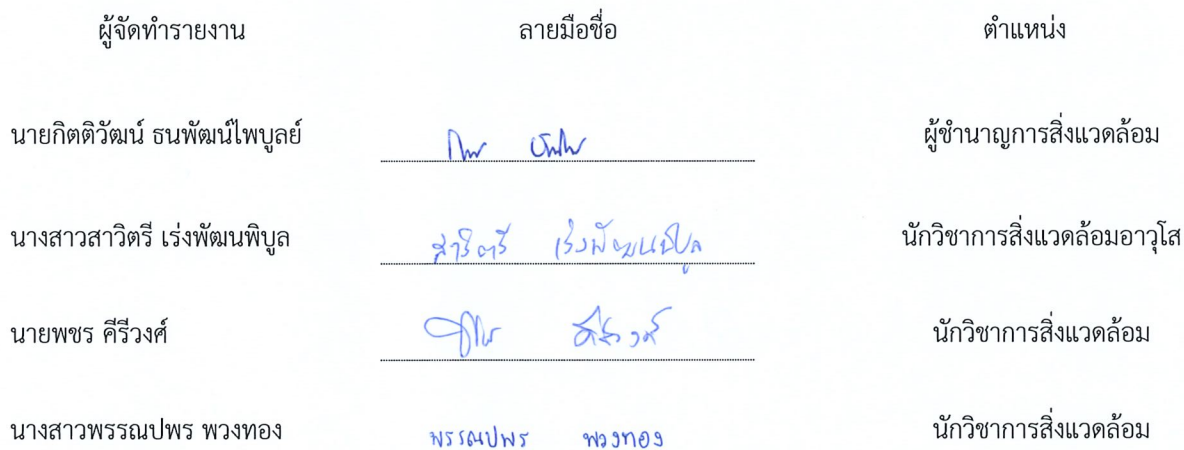 ผู้จัดทำรายงาน ลายมือชื่อ ตำแหน่ง
นายกิตติวัฒน์ ธนพัฒน์ไพบูลย์ ผู้ชำนาญการสิ่งแวดล้อม
นางสาวสาวิตรี เร่งพัฒนพิบูล สาวิตรี เร่งพัฒนพิบูล นักวิชาการสิ่งแวดล้อมอาวุโส
นายพชร คีรีวงศ์ คีรีวงศ์ นักวิชาการสิ่งแวดล้อม
นางสาวพรรณปพร พวงทอง พรรณปพร พวงทอง นักวิชาการสิ่งแวดล้อม